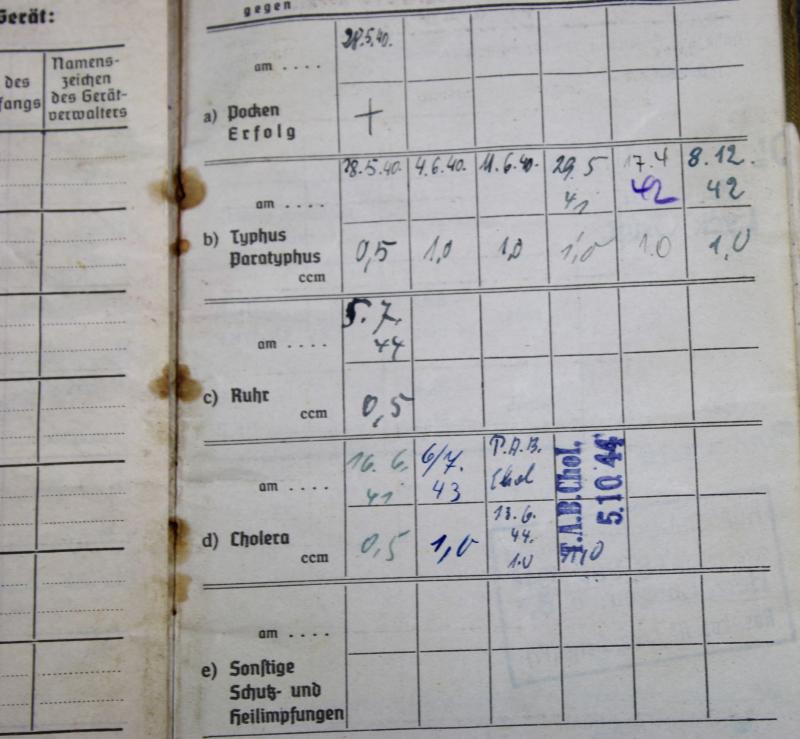 Gerät:
des
fangs
Namens-
zeichen
des Gerät-
verwalters
gegen
28.5.40.
am . . . .
a) Pocken
Erfolg
+
28.5.40. 4.6.40. 11.6.40. 29.5 17.4 8.12.
am . . . . 41 42 42
b) Typhus
Paratyphus
ccm
0,5 1,0 1,0 1,0 1.0 1,0
5.7.
am . . . . 44
c) Ruhr
ccm
0,5
16.6. 6/7. T.A.B. T.A.B.Chol.
am . . . . 41 43 Chol 5.10.44
13.6.
d) Cholera 0,5 1,0 44.
ccm 1.0
am . . . .
e) Sonstige
Schutz- und
Heilimpfungen